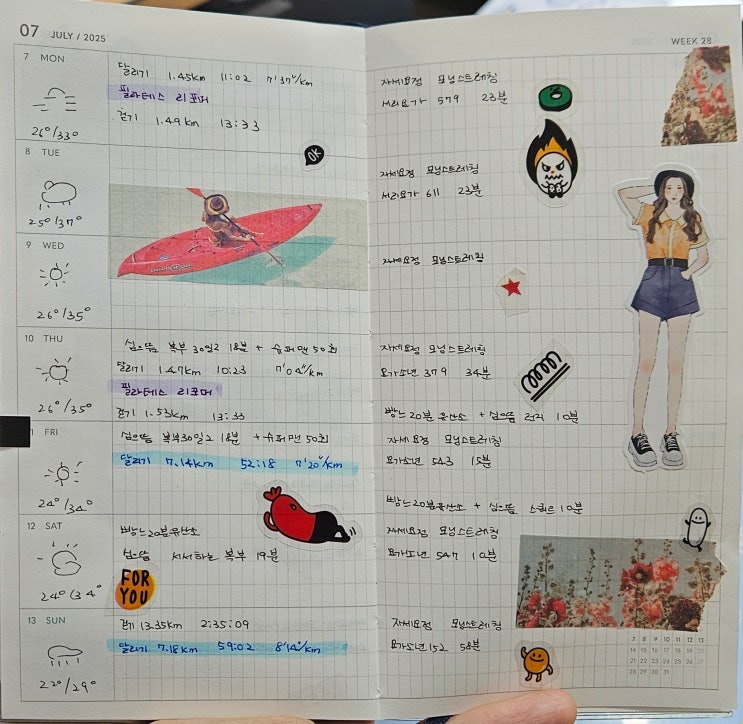 07 JULY / 2025
WEEK 28
7 MON
26°/33°
달리기 1.45km 11:02 7'37"/km
필라테스 리포머
걷기 1.49km 13:33
자세요정 모닝스트레칭
서리요가 579 23분
8 TUE
25°/37°
OK
자세요정 모닝스트레칭
서리요가 611 23분
9 WED
26°/35°
자세요정 모닝스트레칭
10 THU
26°/35°
심으뜸 복부 30일2 18분 + 슈퍼맨 50회
달리기 1.47km 10:23 7'04"/km
필라테스 리포머
걷기 1.53km 13:33
자세요정 모닝스트레칭
요가소년 379 34분
빵느 20분 유산소 + 심으뜸 런지 10분
FRI
24°/34°
심으뜸 복부30일2 18분 + 슈퍼맨 50회
달리기 7.14km 52:18 7'20"/km
자세요정 모닝스트레칭
요가소년 543 15분
빵느20분유산소 + 심으뜸 스쿼트 10분
12 SAT
24°/34°
빵느20분유산소
심으뜸 서서하는 복부 19분
FOR
YOU
자세요정 모닝스트레칭
요가소년 547 10분
13 SUN
22°/29°
걷기 13.35km 2:35:09
달리기 7.18km 59:02 8'14"/km
자세요정 모닝스트레칭
요가소년 152 58분
7 8 9 10 11 12 13
14 15 16 17 18 19 20
21 22 23 24 25 26 27
28 29 30 31